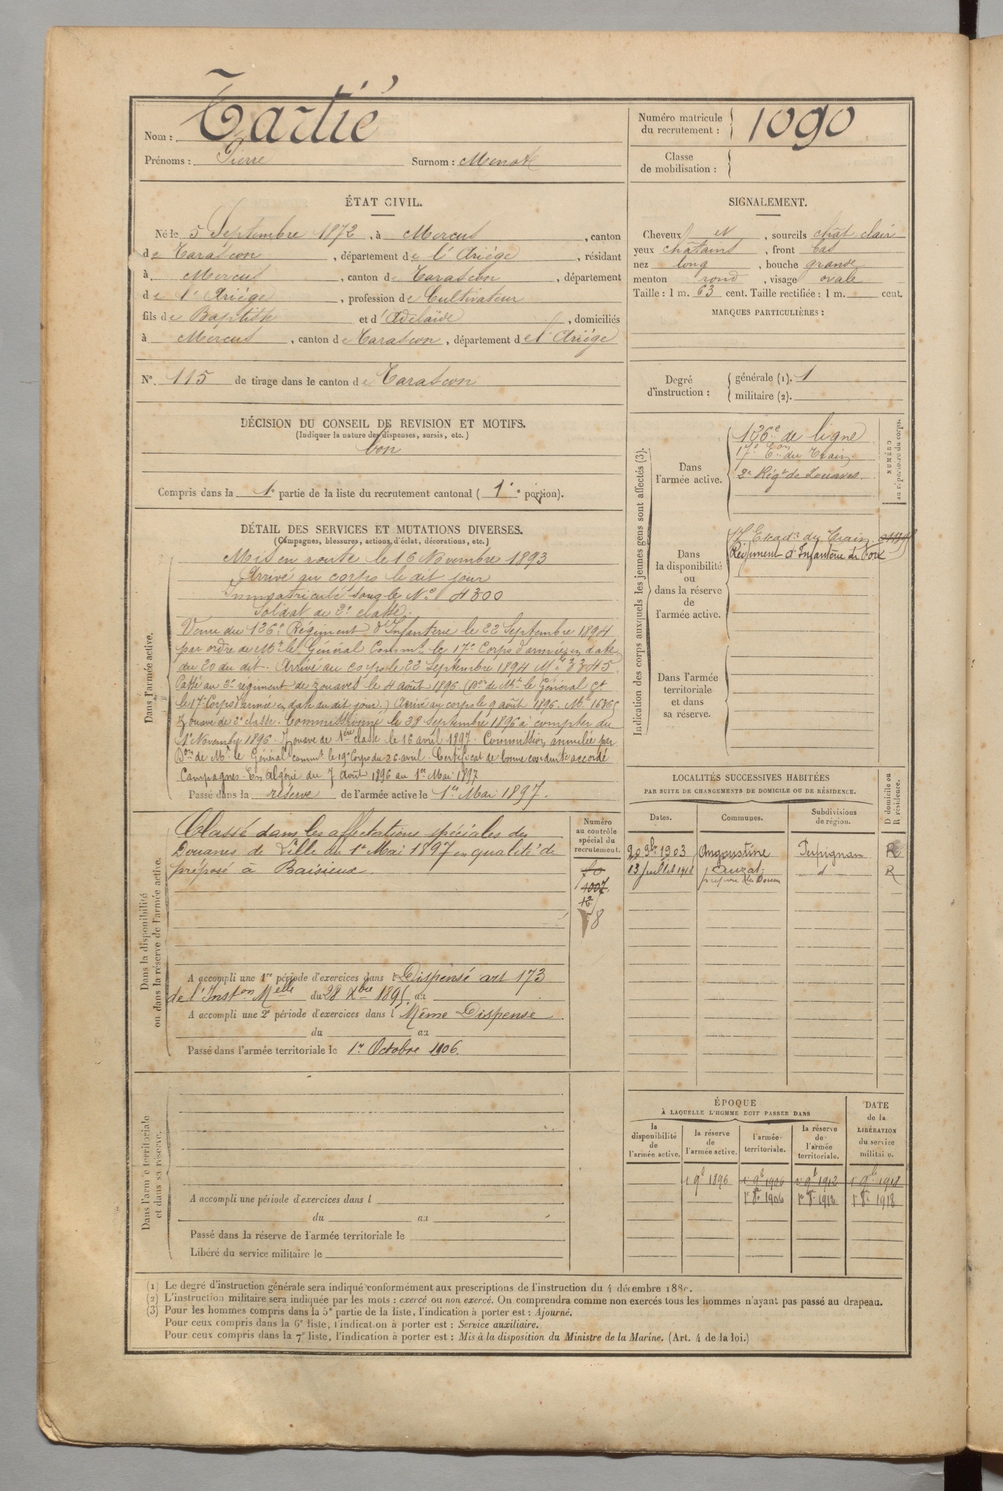 Nom : Tartié
Prénoms : Pierre Surnom : Menot
Numéro matricule
du recrutement : 1090
Classe
de mobilisation :
ÉTAT CIVIL.
Né le 5 Septembre 1872, à Mercus, canton
de Tarascon, département de l'Ariège, résidant
à Mercus, canton de Tarascon, département
de l'Ariège, profession de Cultivateur
fils de Baptiste et d'Adelaïde, domiciliés
à Mercus, canton de Tarascon, département de l'Ariège
N° 115 de tirage dans le canton de Tarascon
SIGNALEMENT.
Cheveux et, sourcils chât. clair
yeux châtains, front bas
nez long, bouche grande
menton rond, visage ovale
Taille : 1 m. 63 cent. Taille rectifiée : 1 m. cent.
MARQUES PARTICULIÈRES :
Degré
d'instruction :
générale (1). 1
militaire (2).
DÉCISION DU CONSEIL DE REVISION ET MOTIFS.
(Indiquer la nature des dispenses, sursis, etc.)
bon
Compris dans la 1e partie de la liste du recrutement cantonal (1e portion).
DÉTAIL DES SERVICES ET MUTATIONS DIVERSES.
(Campagnes, blessures, actions d'éclat, décorations, etc.)
Dans l'armée active.
Mis en route le 16 Novembre 1893
Arrivé au corps le dit jour
Immatriculé sous le N° 4300
Soldat de 2e classe.
Venu du 126e Régiment d'Infanterie le 22 Septembre 1894
par ordre de Mr le Général Commt le 17e Corps d'armée en date
du 20 du dit. Arrivé au corps le 22 Septembre 1894 Mle 3345
Passé au 2e régiment de zouaves le 4 août 1896 (Don de Mr le Général Ct
le 17e Corps d'armée en date du dit jour.) Arrivé au corps le 9 août 1896. Mle
Zouave de 2e classe. Commissionné le 29 Septembre 1896 à compter du
1er Novembre 1896. Zouave de 1ère classe le 16 avril 1897. Commission annulée par
Don de Mr le Général commt le 19e Corps du 26 avril. Certificat de bonne conduite accordé
Campagnes. En Algérie du 7 août 1896 au 1er Mai 1897
Passé dans la réserve de l'armée active le 1er Mai 1897.
Indication des corps auxquels les jeunes gens sont affectés (3).
Dans
l'armée active.
126e de ligne
17e Eon du Train
2e Régt de Zouaves
NUMÉRO
au répertoire du corps.
Dans
la disponibilité
ou
dans la réserve de
l'armée active.
17e Escadn du Train
Régiment d'Infanterie de Foix
Dans l'armée
territoriale
et dans
sa réserve.
Dans la disponibilité
ou dans la réserve de l'armée active.
Classé dans les affectations spéciales des
Douanes de Lille du 1er Mai 1897 en qualité de
préposé à Baisieux.
Numéro
au contrôle
spécial du
recrutement.
A accompli une 1re période d'exercices dans l Dispensé art 173
de l'Inston Melle du 28 Xbre 1895 au
A accompli une 2e période d'exercices dans l Même Dispense
du au
Passé dans l'armée territoriale le 1er Octobre 1906.
LOCALITÉS SUCCESSIVES HABITÉES
PAR SUITE DE CHANGEMENTS DE DOMICILE OU DE RÉSIDENCE.
Dates. Communes. Subdivisions
de région.
D domicile ou
R résidence.
20 9bre 1903 Angoustrine Perpignan R
13 juillet 1918 Auzat d R
préposé des Douanes
Dans l'armée territoriale
et dans sa réserve.
A accompli une période d'exercices dans l
du au
Passé dans la réserve de l'armée territoriale le
Libéré du service militaire le
ÉPOQUE
À LAQUELLE L'HOMME DOIT PASSER DANS
la
disponibilité
de
l'armée active.
la réserve
de
l'armée active.
l'armée
territoriale.
la réserve
de
l'armée
territoriale.
DATE
de la
LIBÉRATION
du service
militaire.
1 9b 1896 1 9b 1906 1 9b 1912 1 9b 1918
1er 8re 1906 1er 8 1912 1er 8re 1918
(1) Le degré d'instruction générale sera indiqué conformément aux prescriptions de l'instruction du 4 décembre 1889.
(2) L'instruction militaire sera indiquée par les mots : exercé ou non exercé. On comprendra comme non exercés tous les hommes n'ayant pas passé au drapeau.
(3) Pour les hommes compris dans la 5e partie de la liste, l'indication à porter est : Ajourné.
Pour ceux compris dans la 6e liste, l'indication à porter est : Service auxiliaire.
Pour ceux compris dans la 7e liste, l'indication à porter est : Mis à la disposition du Ministre de la Marine. (Art. 4 de la loi.)